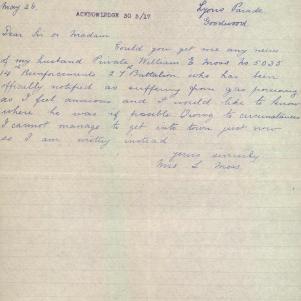 May 26.
Lyons Parade
ACKNOWLEDGE 30 5/17
Goodwood.
Dear Sir or Madam
Could you get me any news
of my husband Private William E. Moss No 5035
14th Reinforcements 27th Battalion who has been
officially notified as suffering from gas poisoning
as I feel anxious and it would like to know
where he was if possible Owing to circumstances
I cannot manage to get into town just now
so I am writing instead
yours sincerely
Mrs L Moss